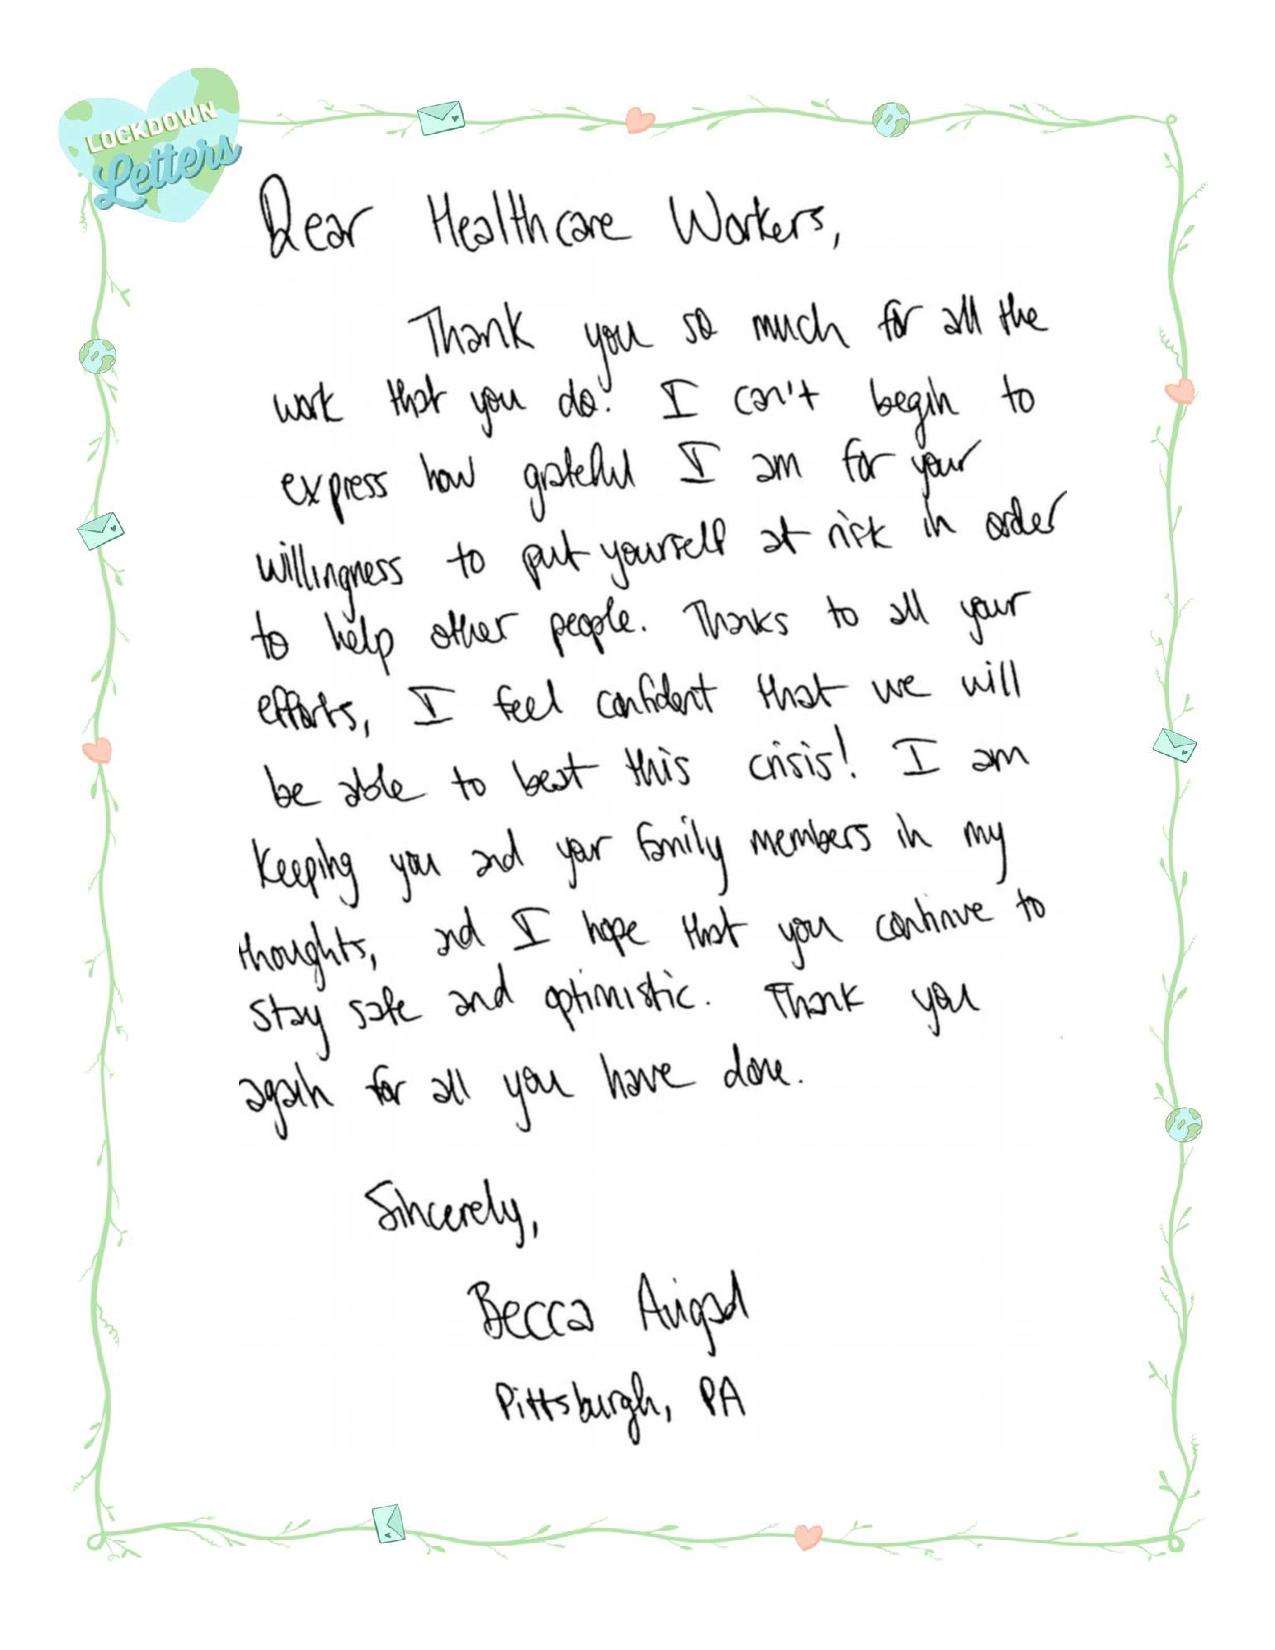 LOCKDOWN
Letters
Dear Healthcare Workers,
Thank you so much for all the
work that you do! I can't begin to
express how grateful I am for your
willingness to put yourself at risk in order
to help other people. Thanks to all your
efforts, I feel confident that we will
be able to beat this crisis! I am
keeping you and your family members in my
thoughts, and I hope that you continue to
stay safe and optimistic. Thank you
again for all you have done.
Sincerely,
Becca Avigad
Pittsburgh, PA